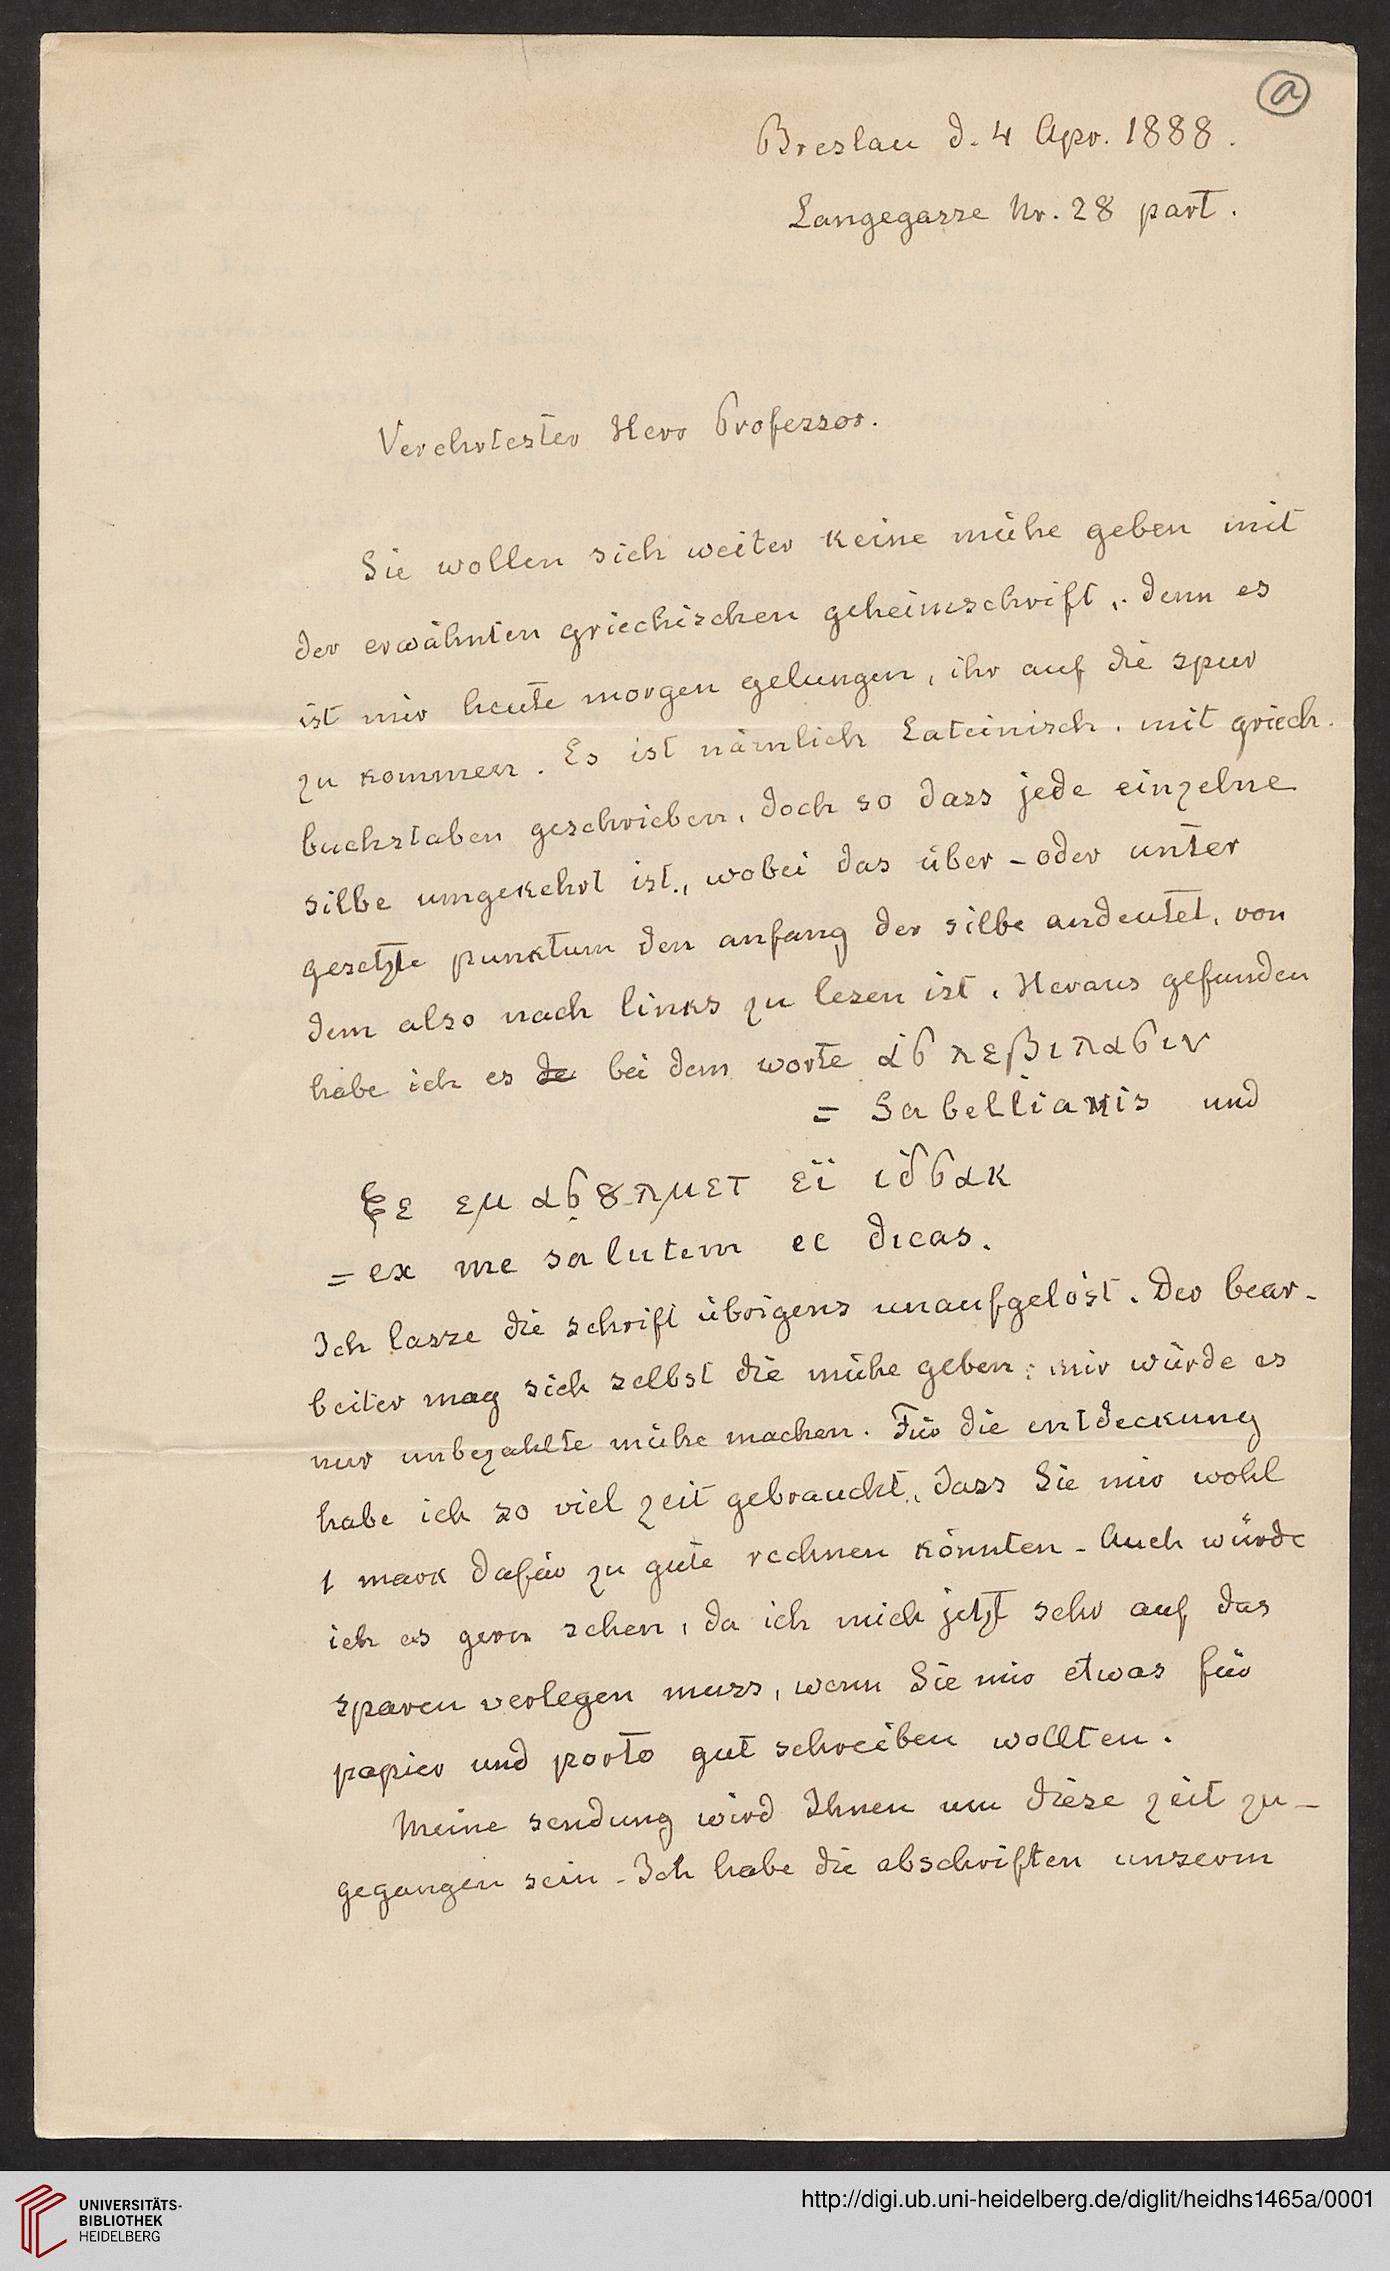 a
Breslau d. 4 Apr. 1888.
Langegasse Nr. 28 part.
Verehrtester Herr Professor.
Sie wollen sich weiter keine mühe geben mit
der erwähnten griechischen geheimschrift, denn es
ist mir heute morgen gelungen, ihr auf die spur
zu kommen. Es ist nämlich Lateinisch, mit griech.
buchstaben geschrieben, doch so dass jede einzelne
silbe umgekehrt ist, wobei das über- oder unter
gesetzte punktum den anfang der silbe andeutet, von
dem also nach links zu lesen ist. Heraus gefunden
habe ich es de bei dem worte
= Sabellianis und
= ex me salutem ec dicas.
Ich lasse die schrift übrigens unaufgelöst. Der bear-
beiter mag sich selbst die mühe geben; mir würde es
nur unbezahlte mühe machen. Für die entdeckung
habe ich so viel zeit gebraucht, dass Sie mir wohl
1 mark dafür zu gute rechnen könnten. Auch würde
ich es gern sehen, da ich mich jetzt sehr auf das
sparen verlegen muss, wenn Sie mir etwas für
papier und porto gut schreiben wollten.
Meine sendung wird Ihnen um diese zeit zu-
gegangen sein. Ich habe die abschriften unserm
UNIVERSITÄTS-
BIBLIOTHEK
HEIDELBERG
http://digi.ub.uni-heidelberg.de/diglit/heidhs1465a/0001